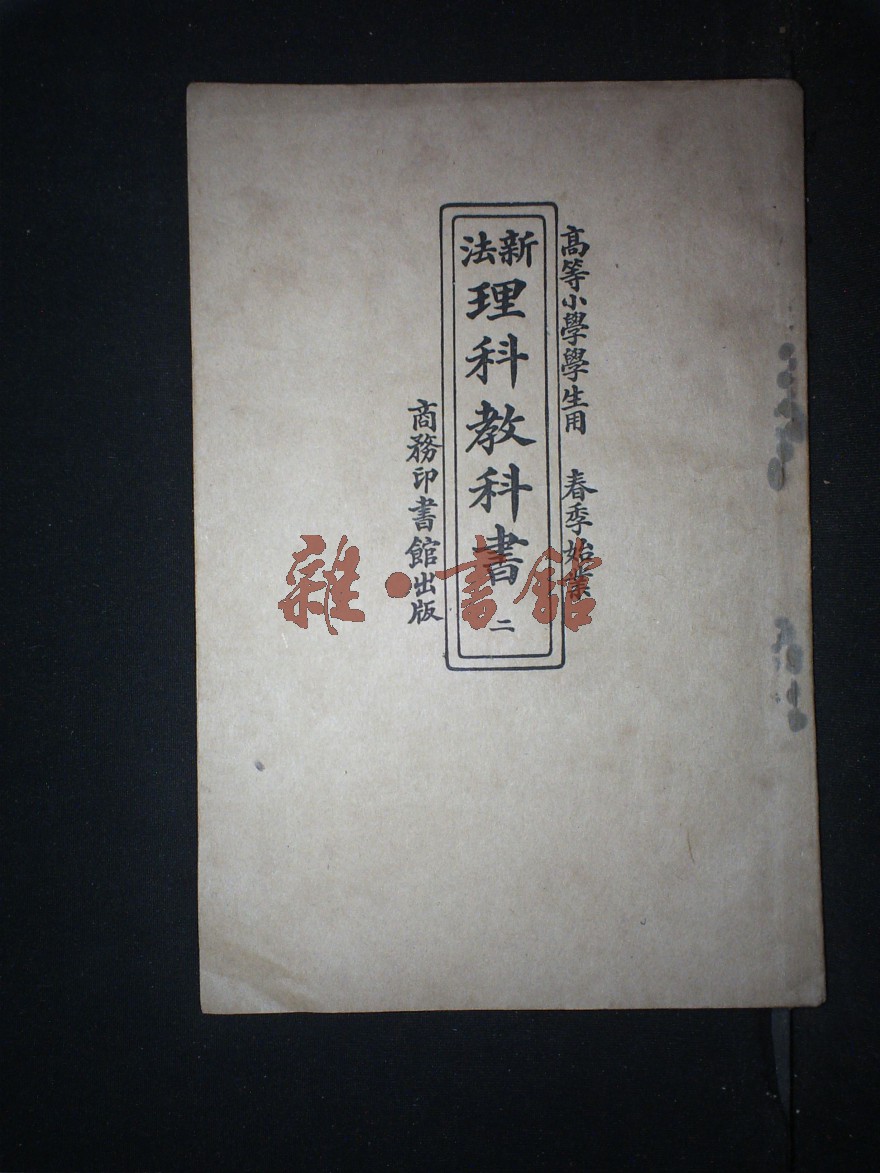 高等小學學生用 春季始業
新法
理科教科書 二
商務印書館出版
雜·書館